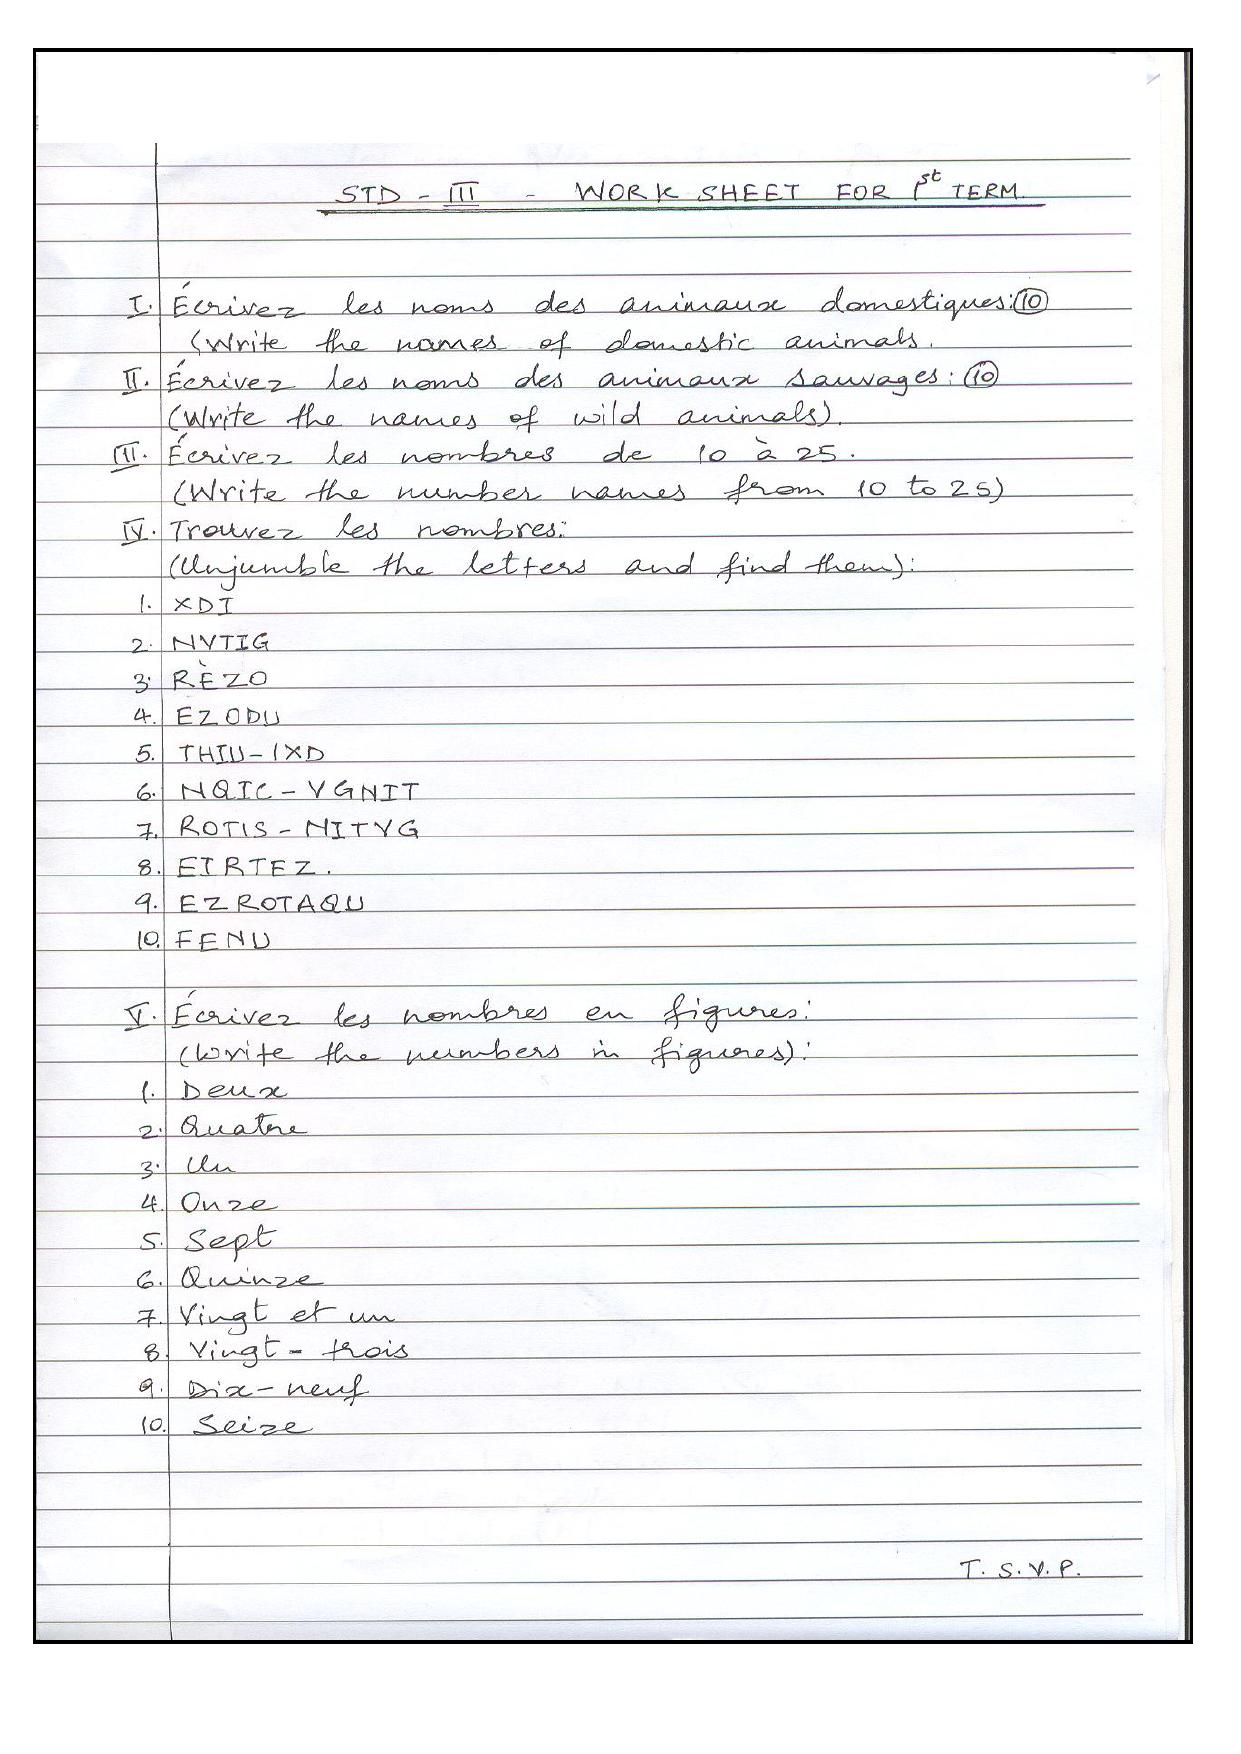 STD - III - WORK SHEET FOR 1st TERM.
I. Écrivez les noms des animaux domestiques: 10
(Write the names of domestic animals.
II. Écrivez les noms des animaux sauvages: 10
(Write the names of wild animals).
III. Écrivez les nombres de 10 à 25.
(Write the number names from 10 to 25)
IV. Trouvez les nombres:
(Unjumble the letters and find them):
1. XDI
2. NVTIG
3. RÈZO
4. EZODU
5. THIU-IXD
6. NQIC - VGNIT
7. ROTIS - NITVG
8. EIRTEZ.
9. EZROTAQU
10. FENU
V. Écrivez les nombres en figures:
(Write the numbers in figures):
1. Deux
2. Quatre
3. Un
4. Onze
5. Sept
6. Quinze
7. Vingt et un
8. Vingt - trois
9. Dix-neuf
10. Seize
T. S.V.P.